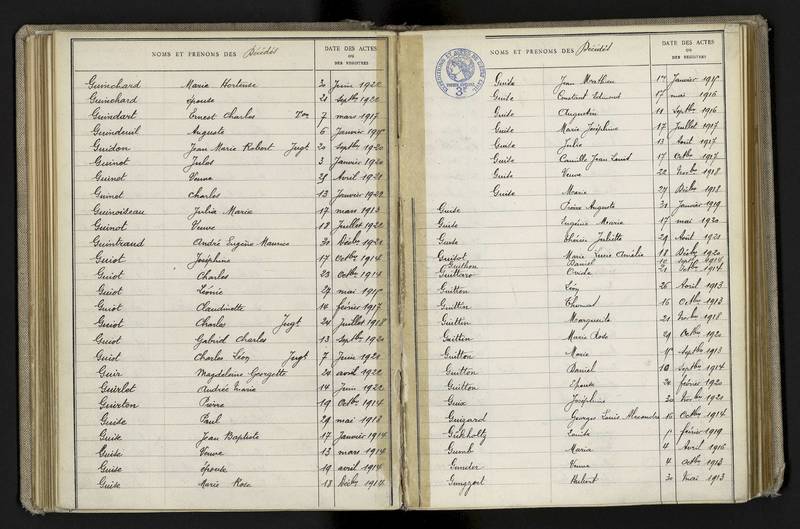 NOMS ET PRENOMS DES Décédés
DATE DES ACTES
OU
DES REGISTRES
Guinchard Marie Hortense 20 Juin 1922
Guinchard épouse 21 Septbre 1922
Guindart Ernest Charles 7 mars 1917
Guindeuil Auguste 6 Janvier
Guidon Jean Marie Robert Jugt 20 Septbre 1920
Guinot Jules 3 Janvier 1920
Guinot Veuve 29 Avril 1921
Guinot Charles 13 Janvier 1922
Guinoiseau Julia Marie 17 mars 1913
Guinot Veuve 18 Juillet 1922
Guintrand André Eugène Maurice 30 Décbre 1921
Guiot Joséphine 17 Octbre 1914
Guiot Charles 23 Octbre 1914
Guiot Léonie 27 mai
Guiot Claudinette 14 février 1917
Guiot Charles Jugt 24 Juillet 1918
Guiot Gabriel Charles 13 Septbre 1920
Guiot Charles Léon Jugt 7 Juin 1921
Guir Magdeleine Georgette 20 avril 1922
Guirlot André Marie 14 Juin 1922
Guirton Pierre 19 Octbre 1914
Guide Paul 29 mai 1913
Guise Jean Baptiste 17 Janvier 1914
Guise Veuve 13 mars 1914
Guise épouse 19 avril 1914
Guise Marie Rose 18 Décbre 1914
NOMS ET PRENOMS DES Décédés
DATE DES ACTES
OU
DES REGISTRES
Guise Jean Mathieu Janvier
Guise Constant Edmond 17 mai 1916
Guise Augustin 11 Septbre 1916
Guise Marie Joséphine 17 Juillet 1917
Guise Julie 13 Août 1917
Guise Camille Jean Louis 17 Octbre 1917
Guise Veuve 22 Novbre 1918
Guise Marie 27 Décbre 1918
Guise Pierre Auguste 31 Janvier 1919
Guise Eugénie Marie 17 mai 1920
Guise Thérèse Juliette 29 Août 1920
Guitot Marie Lucie Amélie 18 Décbre 1920
Guithon Daniel 10 Septbre 1914
Guittard Ovide 21 Octbre 1914
Guitton Léon 26 Avril 1913
Guittin Thomas 16 Octbre 1913
Guittin Marguerite 21 Novbre 1918
Guittin Marie Rose 29 Octbre 1920
Guitton Marie Septbre 1913
Guitton Daniel 10 Septbre 1914
Guitton Epouse 20 février 1920
Guix Joséphine 30 Novbre 1920
Guizard Georges Louis Alexandre 16 Octbre 1914
Gukholtz Emile février 1919
Gumb Maria 4 Avril 1916
Gunder Veuve 4 Octbre 1913
Gungzort Hubert 30 Mai 1913